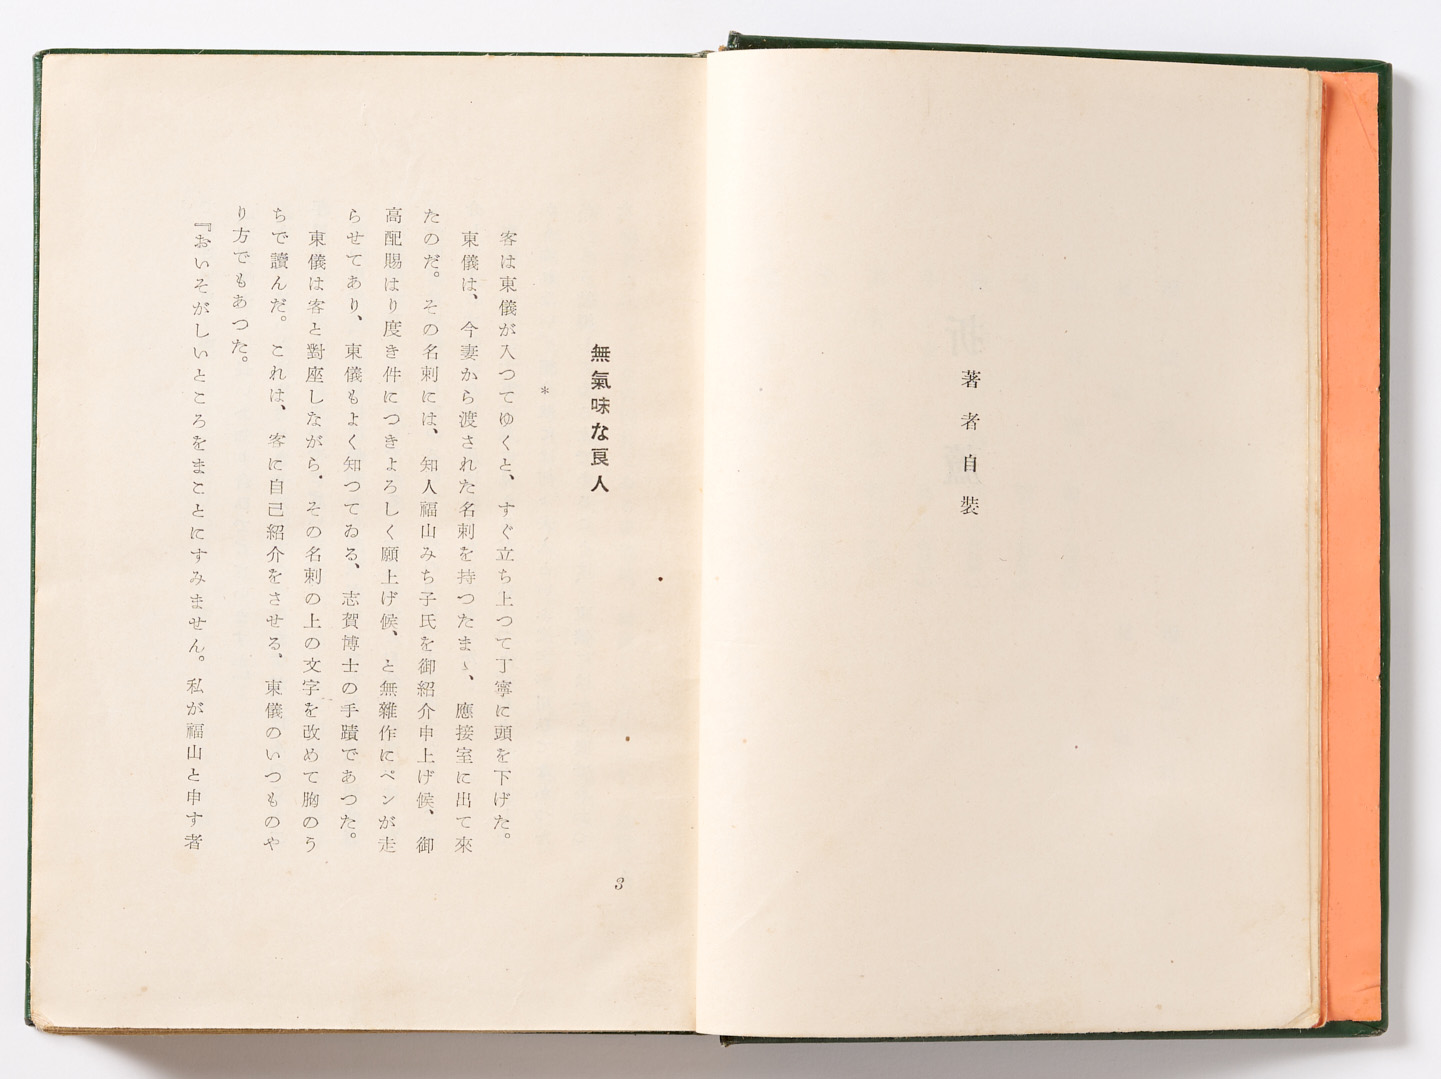 著者自裝
無氣味な良人
*
客は東儀が入つてゆくと、すぐ立ち上つて丁寧に頭を下げた。
東儀は、今妻から渡された名刺を持つたまゝ、應接室に出て來
たのだ。その名刺には、知人福山みち子氏を御紹介申上げ候、御
高配賜はり度き件につきよろしく願上げ候、と無雜作にペンが走
らせてあり、東儀もよく知つてゐる、志賀博士の手蹟であつた。
東儀は客と對座しながら、その名刺の上の文字を改めて胸のう
ちで讀んだ。これは、客に自己紹介をさせる、東儀のいつものや
り方でもあつた。
『おいそがしいところをまことにすみません。私が福山と申す者
3